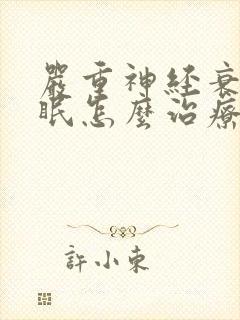 嚴重神経衰
眠怎麼治療
許小東